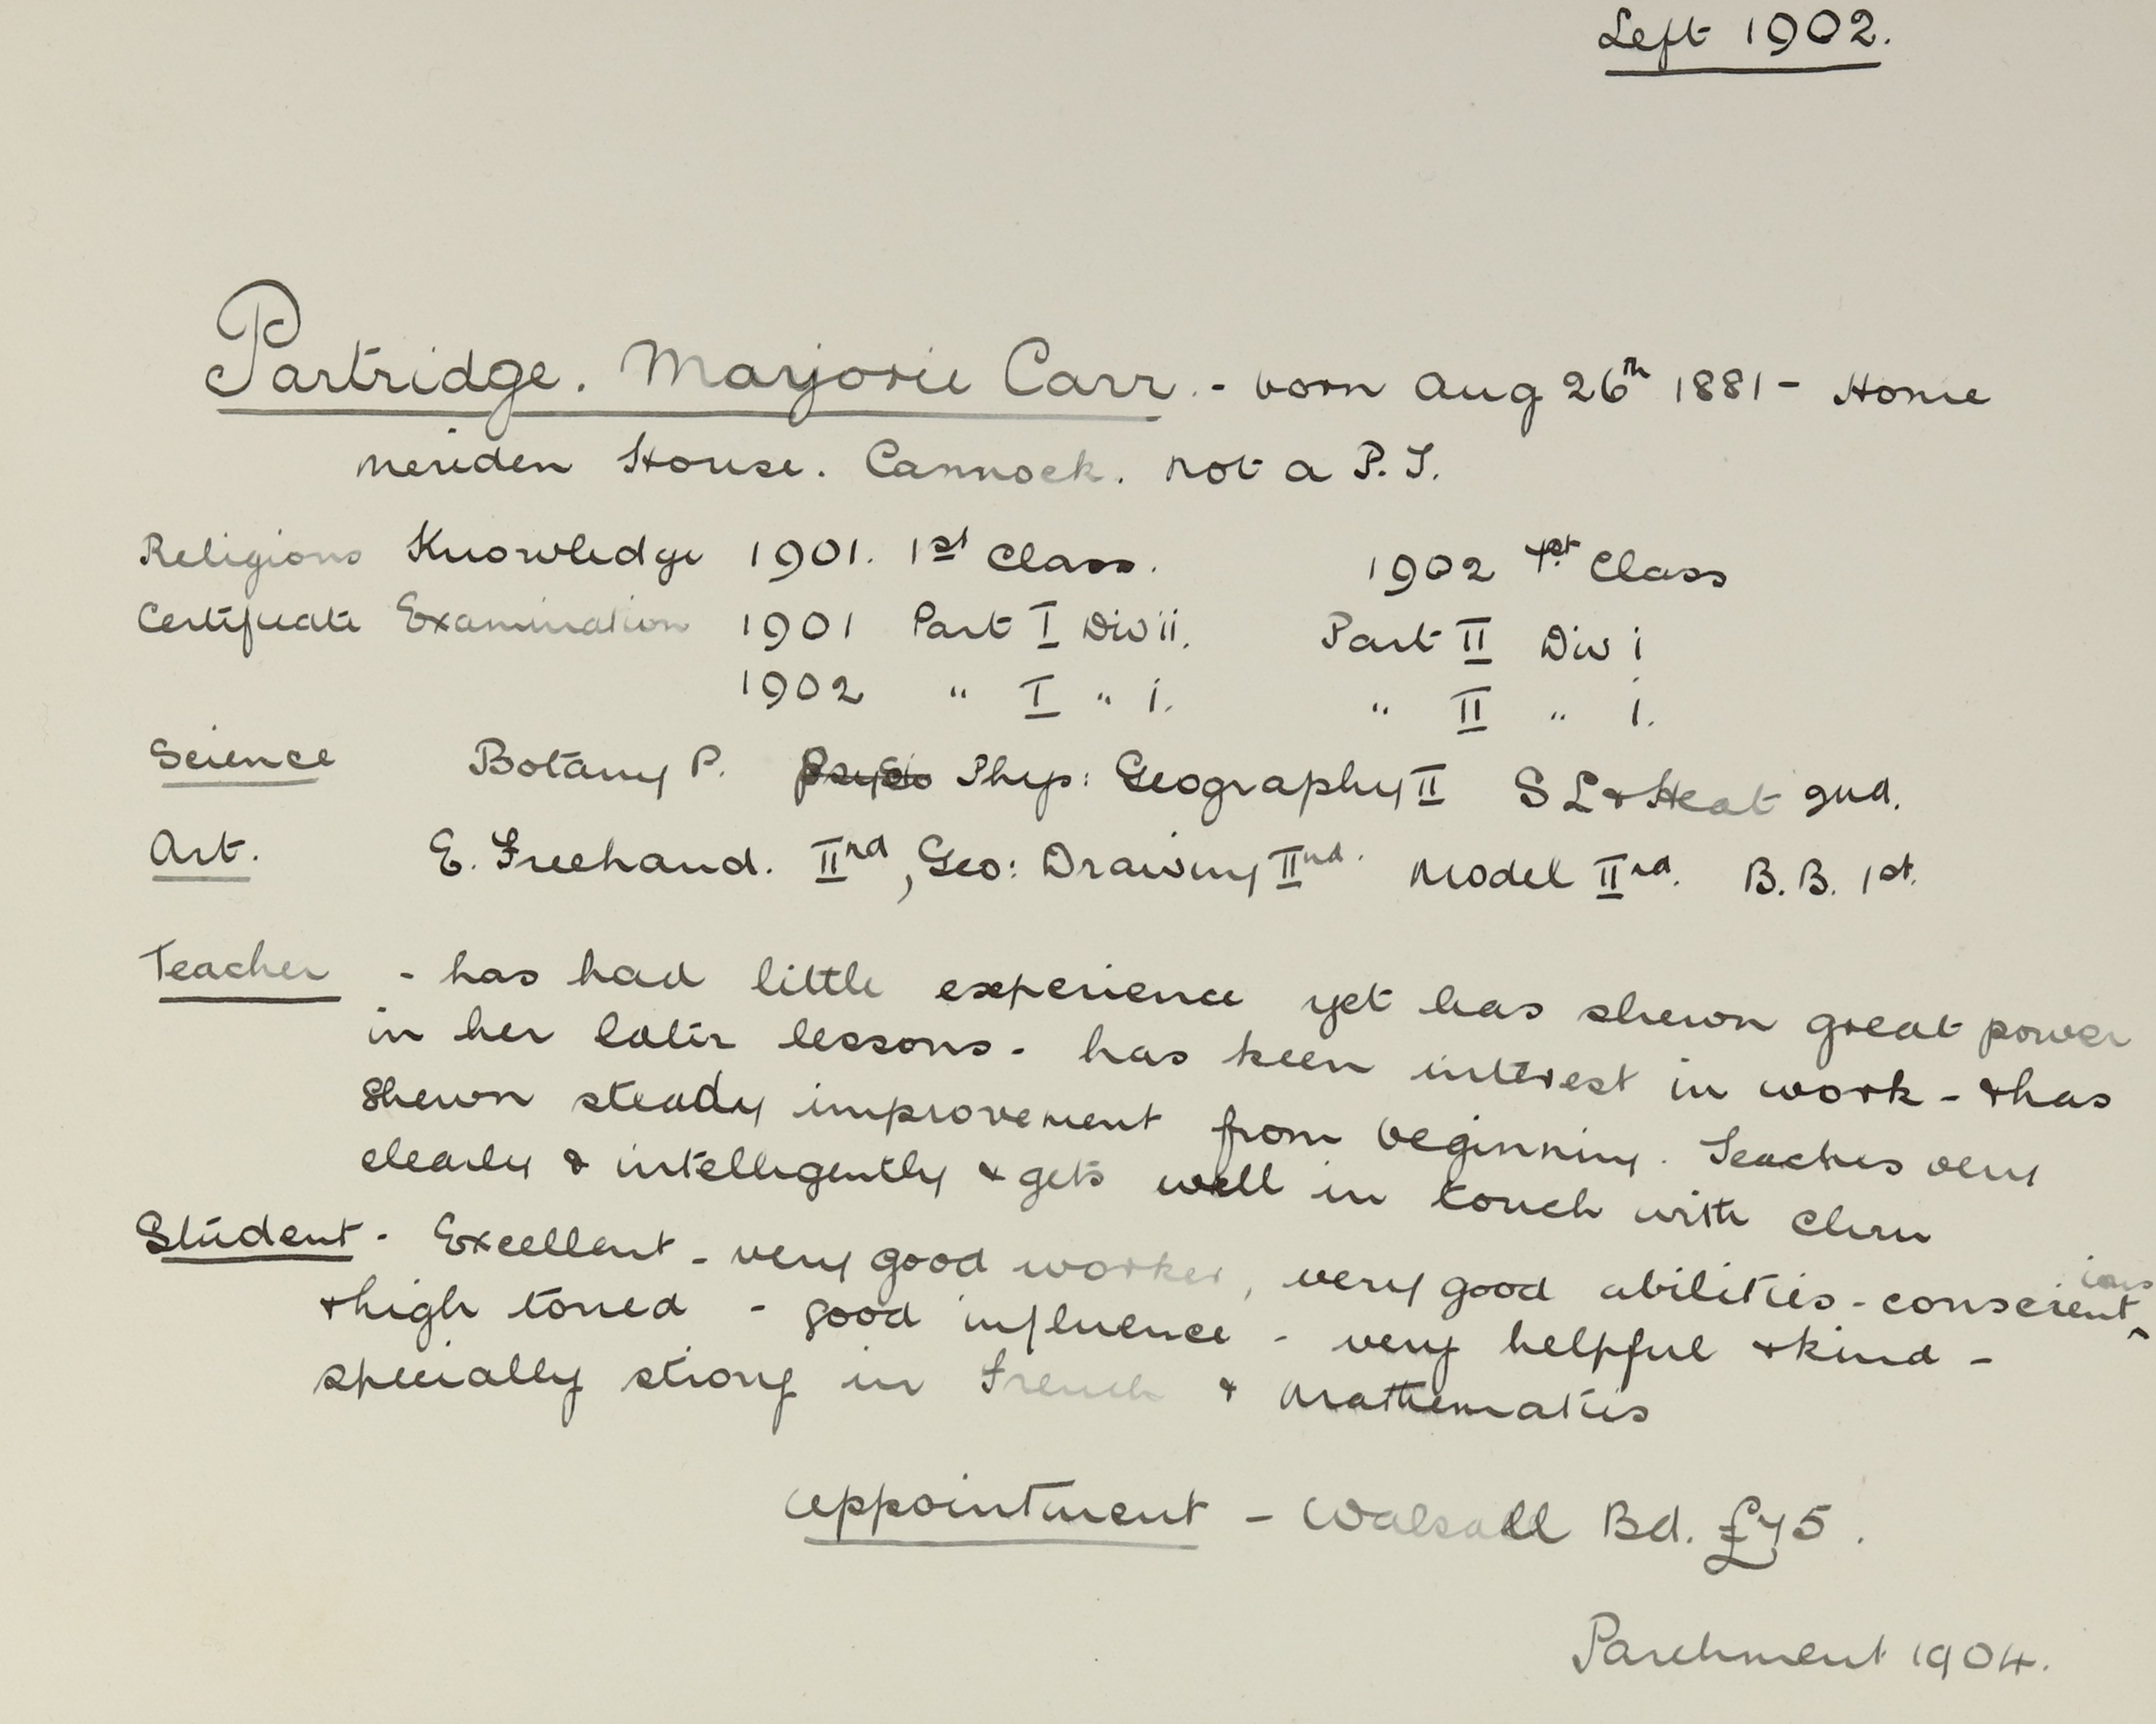 Left 1902.
Partridge. Marjorie Carr. - born Aug 26th 1881 - Home
Meriden House. Cannock. Not a P.T.
Religious Knowledge 1901. 1st Class. 1902 1st Class
Certificate Examination 1901 Part I Div ii. Part II Div i
1902 " I " i. " II " i.
Science Botany P. Phys: Geography II S L & Heat 2nd.
Art. E. Freehand. IInd, Geo: Drawing IInd. Model IInd. B.B. 1st.
Teacher - has had little experience yet has shewn great power
in her later lessons - has keen interest in work - & has
shewn steady improvement from beginning. Teaches very
clearly & intelligently & gets well in touch with chrn
Student - Excellent - very good worker, very good abilities - conscientious
& high toned - good influence - very helpful & kind -
specially strong in French & Mathematics
Appointment - Walsall Bd. £75.
Parchment 1904.